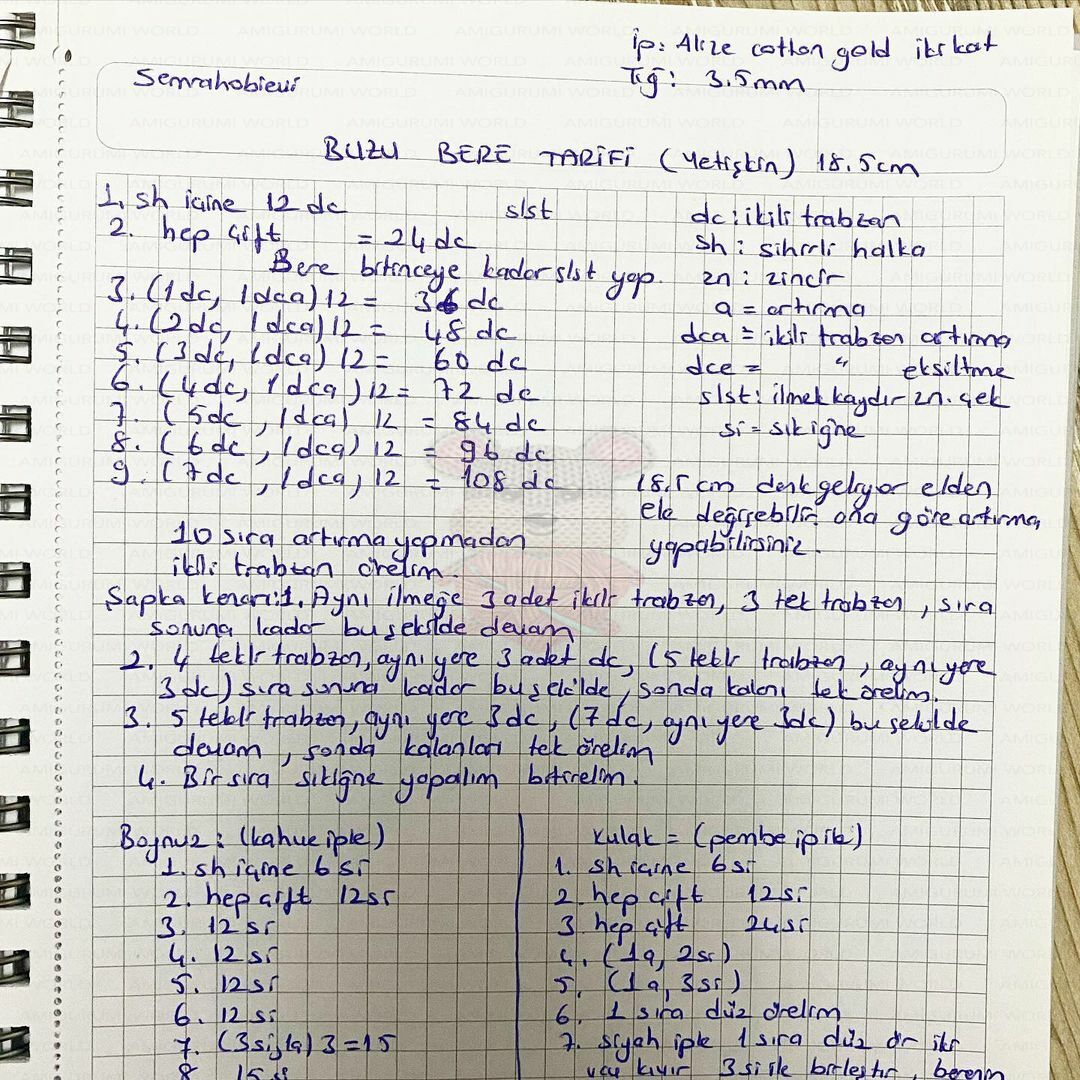 ip: Alize cotton gold iki kat
Tığ: 3.5mm
Semrahobievi
BUZU BERE TARİFİ (Yetişkin) 18.5cm
1. sh içine 12 dc slst
2. hep çift = 24 dc
Bere bitinceye kadar slst yap.
3. (1dc, 1dca) 12 = 36 dc
4. (2dc, 1dca) 12 = 48 dc
5. (3dc, 1dca) 12 = 60 dc
6. (4dc, 1dca) 12 = 72 dc
7. (5dc, 1dca) 12 = 84 dc
8. (6dc, 1dca) 12 = 96 dc
9. (7dc, 1dca, 12 = 108 dc
dc: ikili trabzan
sh: sihirli halka
zn: zincir
a = artırma
dca = ikili trabzan artırma
dce = " eksiltme
slst: ilmek kaydır zn. çek
si = sık iğne
18.5 cm denk geliyor elden
ele değişebilir ona göre artırma
yapabilirsiniz.
10 sıra artırma yapmadan
ikili trabzan örelim.
Şapka kenarı: 1. Aynı ilmeğe 3 adet ikili trabzan, 3 tek trabzan, sıra
sonuna kadar bu şekilde devam
2. 4 tekli trabzan, aynı yere 3 adet dc, (5 tekli trabzan, aynı yere
3dc) sıra sonuna kadar bu şekilde, sonda kalanı tek örelim.
3. 5 tekli trabzan, aynı yere 3dc, (7dc, aynı yere 3dc) bu şekilde
devam, sonda kalanları tek örelim
4. Bir sıra sık iğne yapalım bitirelim.
Boynuz: (kahve iple)
1. sh içine 6 si
2. hep çift 12si
3. 12 si
4. 12 si
5. 12 si
6. 12 si
7. (3si, 1a) 3 = 15
8. 15 si
Kulak = (pembe ip ile)
1. sh içine 6si
2. hep çift 12si
3 hep çift 24si
4. (1a, 2si)
5. (1a, 3si)
6. 1 sıra düz örelim
7. siyah iple 1 sıra düz ör iki
ucu kıvır 3si ile birleştir, berenin
AMIGURUMI WORLD